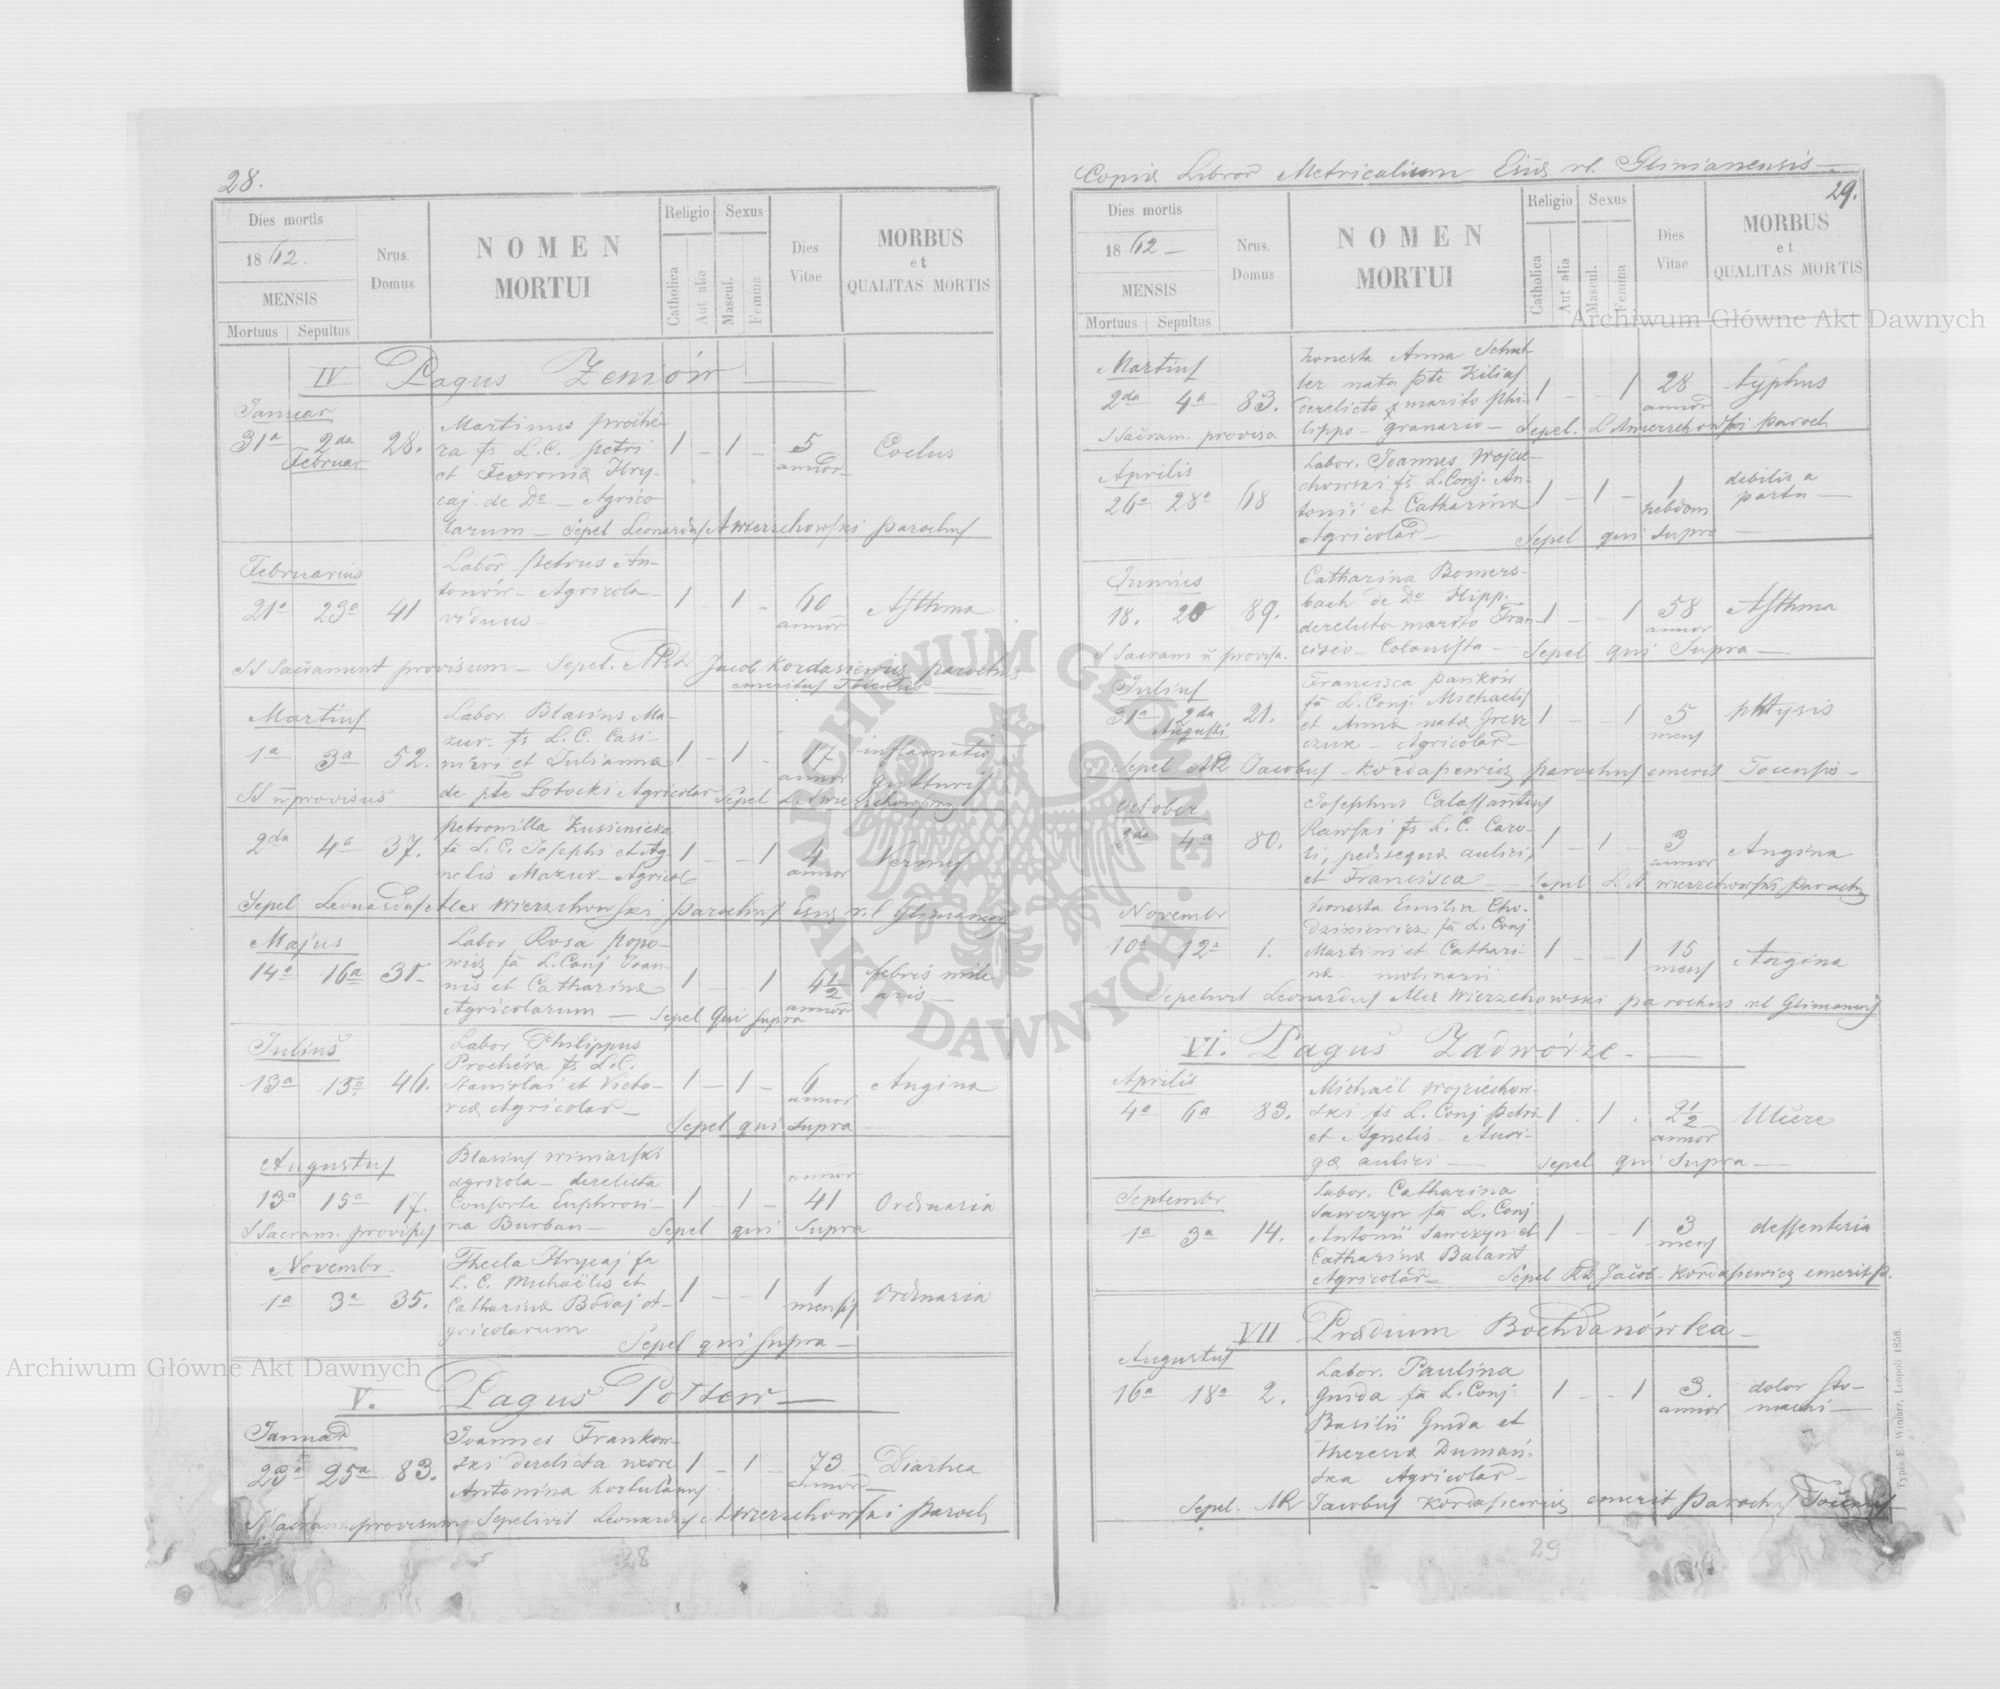 28.
Dies mortis
1862.
MENSIS
Mortuus Sepultus
Nrus.
Domus
NOMEN
MORTUI
Religio
Catholica
Aut alia
Sexus
Mascul.
Femina
Dies
Vitae
MORBUS
et
QUALITAS MORTIS
IV Pagus Zeniów
Januar
31a 2da 28.
Februar
Martinus Proché-
ra fs L.C. Petri
et Fevroniæ Hry-
caj de Do Agrico-
larum
1 - 1 -
5
annor
Coclus
Sepel Leonardus A Wierzchowski Parochus
Februarius
21a 23a 41
Labor Petrus An-
tonów Agricola
viduus
1 - 1 -
60
annor
Asthma
SS Sacrament provisum Sepel. Jacob. Kordasiewicz parochus
emeritus Toiensis
Martius
1a 3a 52.
Labor. Blasius Ma-
zur fs L.C. Casi-
miri et Julianna
de pte Sobocki Agricolar
1 - 1 -
17
annor
inflamatio
gutturis
SS n provisus
2da 4a 37.
Petronilla Kusienicka
fa L.C. Josephi et Ag-
netis Mazur Agricol
1 - - 1
4
annor
Vermes
Sepel Leonardus Alex Wierzchowski Parochus Eius r.l Glinianen
Majus
14a 16a 31.
Labor Rosa Popo-
wicz fa L.Conj Joan-
nis et Catharinæ
Agricolarum
1 - - 1
4 1/2
annor
febris mili-
aris
Sepel qui supra
Julius
13a 15a 46.
Labor Philippus
Prochéra fs L.C.
Stanislai et Victo-
reæ Agricolar
1 - 1 -
6
annor
Angina
Sepel qui supra
Augustus
13a 15a 17.
Blasius Winiarski
agricola derelicta
Consorte Euphrosi-
na Burban
1 - 1 -
annor
41
Ordinaria
S Sacram. provisus
Sepel qui supra
Novembr
1a 3a 35.
Thecla Hrycaj fa
L.C. Michaëlis et
Catharinæ Bodaj A-
gricolarum
1 - - 1
1
mensis
Ordinaria
Sepel qui supra
V. Pagus Połtew
Januar
23a 25a 83.
Joannes Frankow-
ski derelicta uxore
Antonina hortulanus
1 - 1 -
73
annor
Diarhea
S Sacram provisum Sepelivit Leonardus A Wierzchowski Paroch
28
Copia Libror Metricalium Eius r.l. Glinianensis
29.
Dies mortis
1862
MENSIS
Mortuus Sepultus
Nrus.
Domus
NOMEN
MORTUI
Religio
Catholica
Aut alia
Sexus
Mascul.
Femina
Dies
Vitae
MORBUS
et
QUALITAS MORTIS
Martius
2da 4a 83.
honesta Anna Schul-
ler nata pte Kilias
derelicto marito Phi-
lippo granario
1 - - 1
28
annor
typhus
S Sacram. provisa
Sepel. L A Wierzchowski Paroch
Aprilis
26a 28a 68
Labor. Joannes Wojcie-
chowski fs L.Conj. An-
tonii et Catharina
Agricolar
1 - 1 -
1
hebdom
debilis a
partu
Sepel qui supra
Junius
18. 20 89.
Catharina Bomers-
bach de Do Hipp.
derelicto marito Fran-
cisco Colonista
1 - - 1
58
annor
Asthma
S Sacram n provisa.
Sepel qui supra
Julius
31a 2da 21.
Augusti
Francisca Pańków
fa L.Conj. Michaelis
et Anna nata Gresz-
czuk Agricolar
1 - - 1
5
mens
phtysis
Sepel Jacobus Kordasiewicz parochus emerit Toiensis
October
2da 4a 80.
Josephus Calassantius
Rawski fs L.C. Caro-
li, pedsequa aulici,
et Francisca
1 - 1 -
3
annor
Angina
Sepel L A Wierzchowski Paroch
Novembr
10a 12a 1.
honesta Emilia Cho-
dzikiewicz fa L.Conj
Martini et Cathari-
næ molinarii
1 - - 1
15
mens
Angina
Sepelivit Leonardus Alex Wierzchowski parochus r.l Glinianen
VI. Pagus Zadwórze
Aprilis
4a 6a 83.
Michaël Wojciechow-
ski fs L.Conj Petri
et Agnetis Auri-
gæ aulici
1 . 1 .
2 1/2
annor
Ulcere
Sepel qui supra
Septembr
1a 3a 14.
Labor. Catharina
Sawczyn fa L.Conj
Antonii Sawczyn et
Catharinæ Balant
Agricolar
1 - - 1
3
mens
dessenteria
Sepel Jacob Kordasiewicz emerit P.
VII Prædium Bochdanówka
Augustus
16a 18a 2.
Labor. Paulina
Guida fa L.Conj
Basilii Guida et
Theresiæ Dumań-
ska Agricolar
1 - - 1
3.
annor
dolor sto-
machi
Sepel. Jacobus Kordasiewicz emerit Paroch Toiens
Typis E. Winiarz, Leopoli 1856.
29
Archiwum Główne Akt Dawnych
Archiwum Główne Akt Dawnych
ARCHIWUM GŁÓWNE AKT DAWNYCH